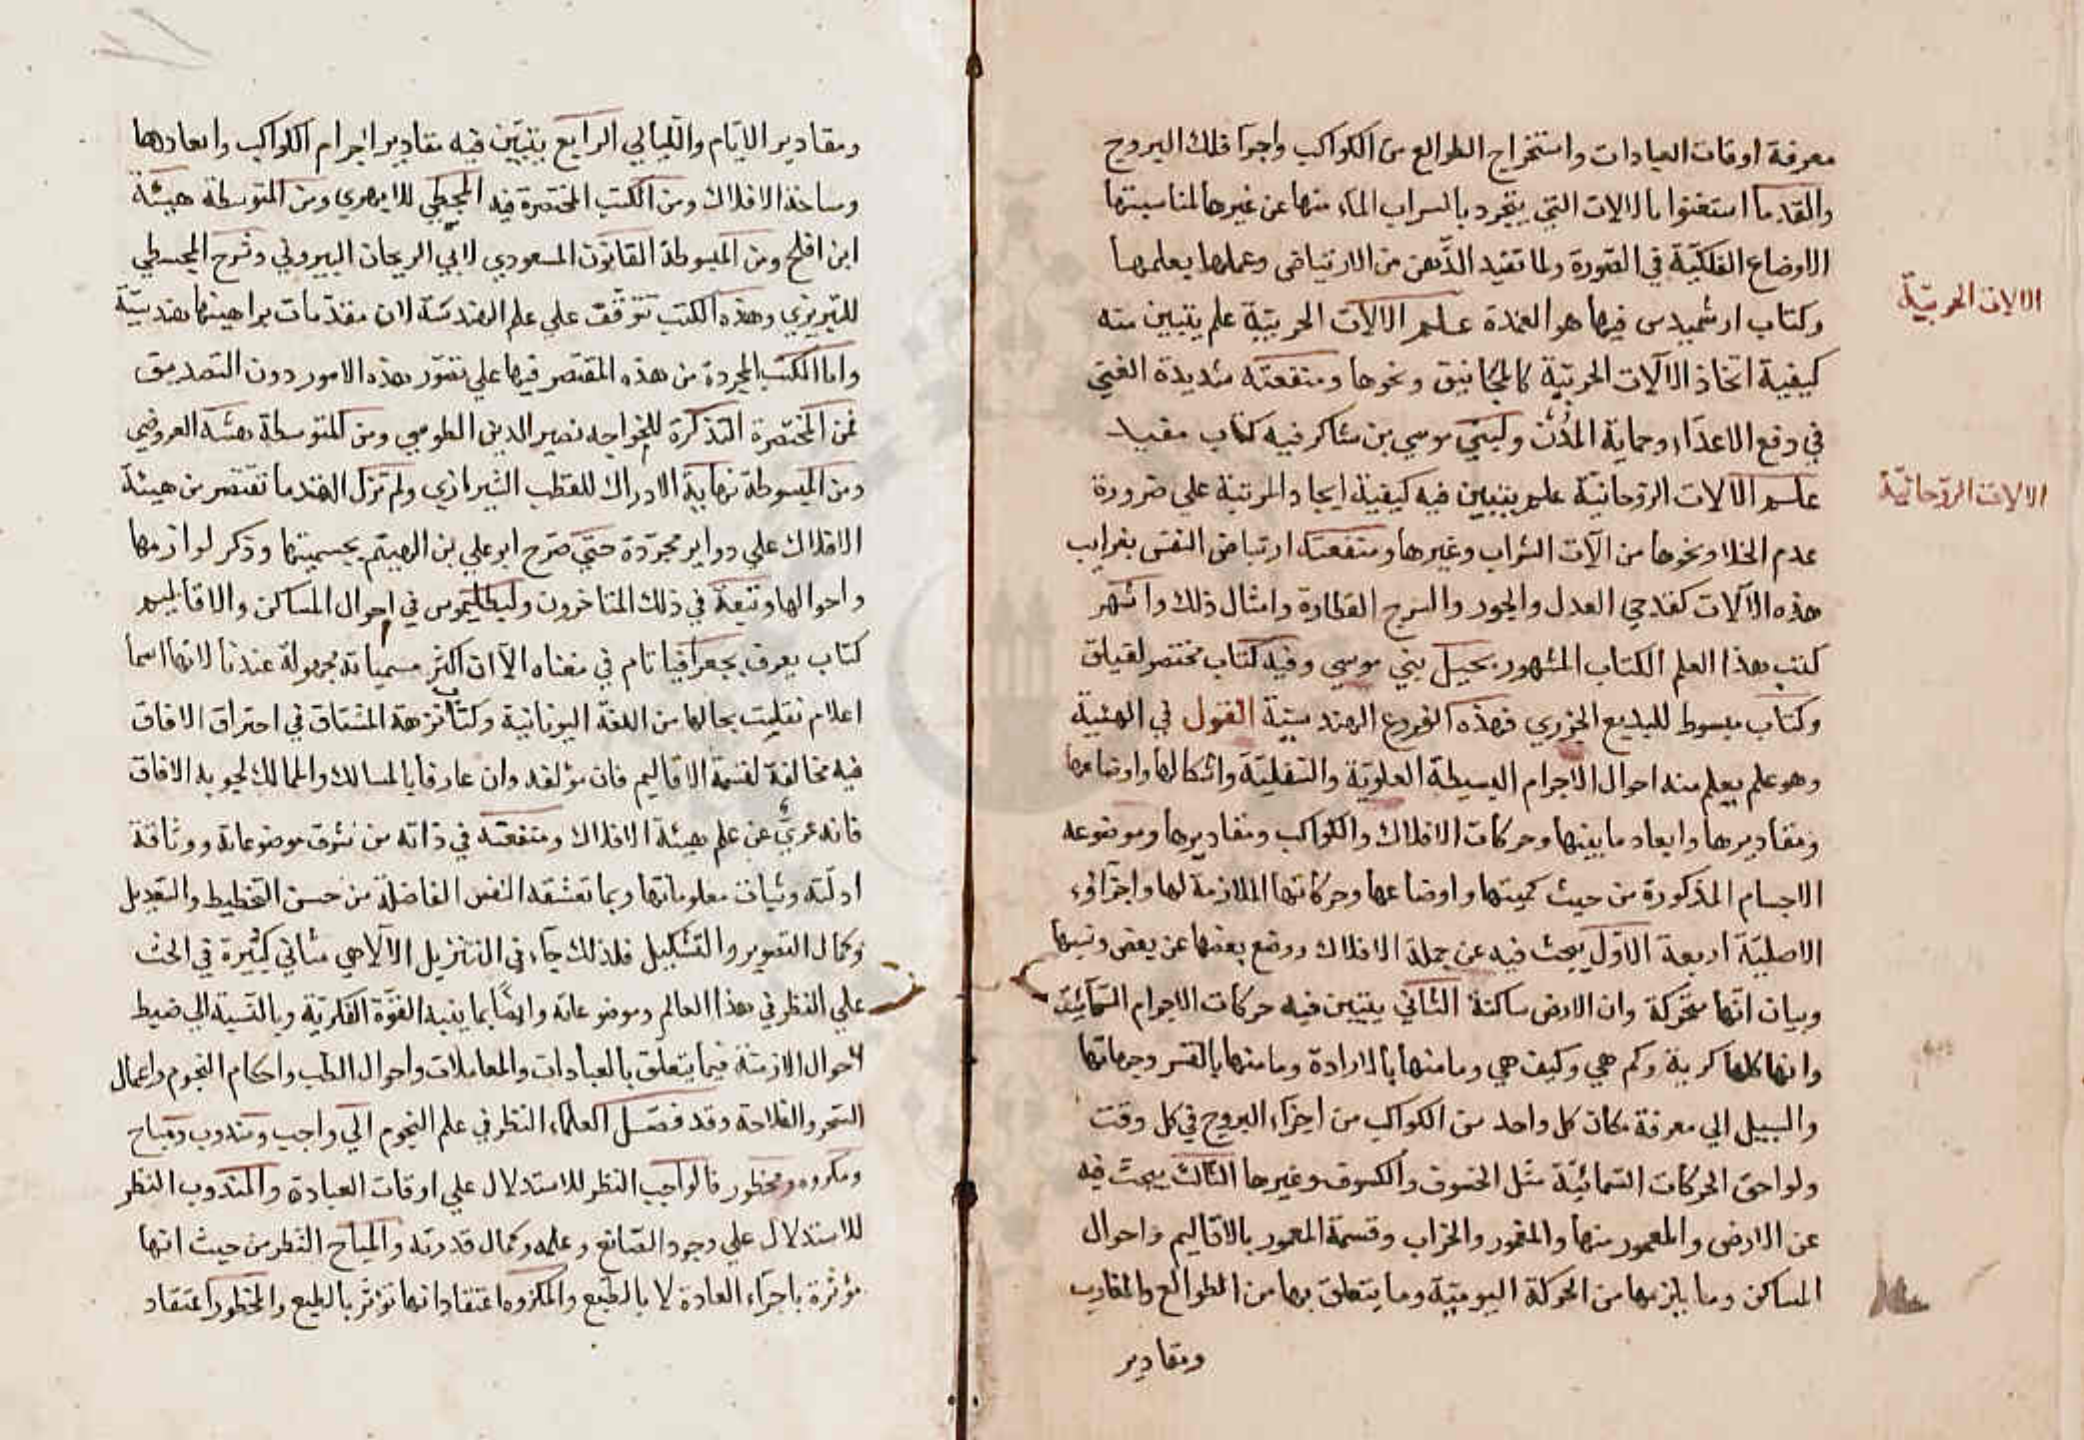 معرفة اوقات العبادات واستخراج الطوالع من الكواكب واجزا فلك البروج
والقدما استغنوا بالالات التي يتجرد بالسراب الماء منها عن غيرها لمناسبتها
الاوضاع الفلكيّة في الصّورة ولما تفيد الذّهن من الارتياض وعملها يعلمها
وكتاب ارشميدس فيها هو العمدة علم الالات الحربيّة علم يتبين منه
الالات الحربيّة
كيفية اتخاذ الآلات الحربيّة كالمجانيق ونحوها ومنفعته شديدة الغنى
في دفع الاعدآء وحماية المدُن ولبنى موسي بن شاكر فيه كتاب مفيد
علم الآلات الروحانيّة علم يتبين فيه كيفية ايجاد المرتبة علي ضرورة
الالات الروّحانيّة
عدم الخلا ونحوها من الآت الشراب وغيرها ومنفعته ارتياض النفس بغرايب
هذه الآلات كقدحي العدل والجور والسرج القطارة وامثال ذلك واشهر
كتب هذا العلم الكتاب المشهور بحيل بني موسي وفيه كتاب مختصر لفيلق
وكتاب مبسوط للبديع الجزري فهذه الفروع الهندسيّة القول في الهئية
وهو علم يعلم منه احوال الاجرام البسيطة العلويّة والسّفليّة واشكالها واوضاعها
ومقاديرها وابعاد ما بينها وحركات الافلاك والكواكب ومقاديرها وموضوعه
الاجسام المذكورة من حيث كميتها واوضاعها وحركاتها اللازمة لها واجزآؤه
الاصليّة اربعة الاوّل يبحث فيه عن جملة الافلاك ووضع بعضها عن بعض ونسبها
وبيان انّها متحركة وان الارض ساكنة الثّاني يتبين فيه حركات الاجرام السّمآئيّة
وانها كلها كرية وكم هي وكيف هي وما منها بالارادة وما منها بالقسر وجهاتها
والسبيل الي معرفة مكان كل واحد من الكواكب من اجزآء البروج في كل وقت
ولواحق الحركات السّمائيّة مثل الخسوف والكسوف وغيرها الثّالث يبحث فيه
عن الارض والمعمور منها والمغمور والخراب وقسمة المعمور بالاقاليم واحوال
المساكن وما يلزمها من الحركة اليوميّة وما يتعلق بها من الطوالع والمغارب
ومقادير
ومقادير الايّام واللّيالي الرابع يتبيّن فيه مقادير اجرام الكواكب وابعادها
ومساحة الافلاك ومن الكتب المختصرة فيه المجسطي للابهري ومن المتوسطة هيئة
ابن افلح ومن المبسوطة القانون المسعودي لابي الريحان البيروني وشرح المجسطي
للتبريزي وهذه الكتب تتوقّف علي علم الهندسّة لان مقدّمات براهينها هندسيّة
واما الكتب المجردة من هذه المقتصر فيها علي تصوّر هذه الامور دون التصديق
فمن المختصرة التذكرة للخواجه نصير الدين الطوسي ومن المتوسطة هئية العروضي
ومن المبسوطة نهاية الادراك للقطب الشيرازي ولم تزل القدما تقتصر من هيئة
الافلاك علي دواير مجرّدة حتّي صرّح ابو علي بن الهيثم بجسميتها وذكر لوازمها
واحوالها وتبعه في ذلك المتاخرون ولبطليموس في احوال المساكن والاقاليم
كتاب يعرف بجعرافيا تام في معناه الآان اكثر مسمياته مجهولة عندنا لانها اسما
اعلام نقليت بحالها من اللغة اليونانية وكتاب نزهة المشتاق في احتراق الافاق
فيه مخالفة لقسمة الاقاليم فان مؤلفه وان عارفا بالمسالك والممالك لجوبه الافاق
فانه عريّ عن علم هيئة الافلاك ومنفعته في ذاته من شرف موضوعاته ووثاقة
ادلّته وثبات معلوماتها وبما تعشقه النفس الفاضلة من حسن التخطيط والتعديل
وكمال التصوير والتشكيل فلذلك جآء في التنزيل الآلاهي مثاني كثيرة في الحث
علي النظر في هذا العالم وموضوعاته وايضًا بما ينبه القوّة الفكريّة وبالنّسبة الي ضبط
احوال الازمنة فيما يتعلق بالعبادات والمعاملات واحوال الطب واحكام النجوم واعمال
السحر والفلاحة وقد فصّل العلماء النظر في علم النجوم الي واجب ومندوب ومباح
ومكروه ومحظور فالواجب النظر للاستدلال علي اوقات العبادة والمندوب النظر
للاستدلال علي وجود الصّانع وعلمه وكمال قدرته والمباح النّظر من حيث انها
مؤثرة باجرآء العادة لا بالطّبع والمكروه اعتقاد انها تؤثر بالطبع والمحظور اعتقاد